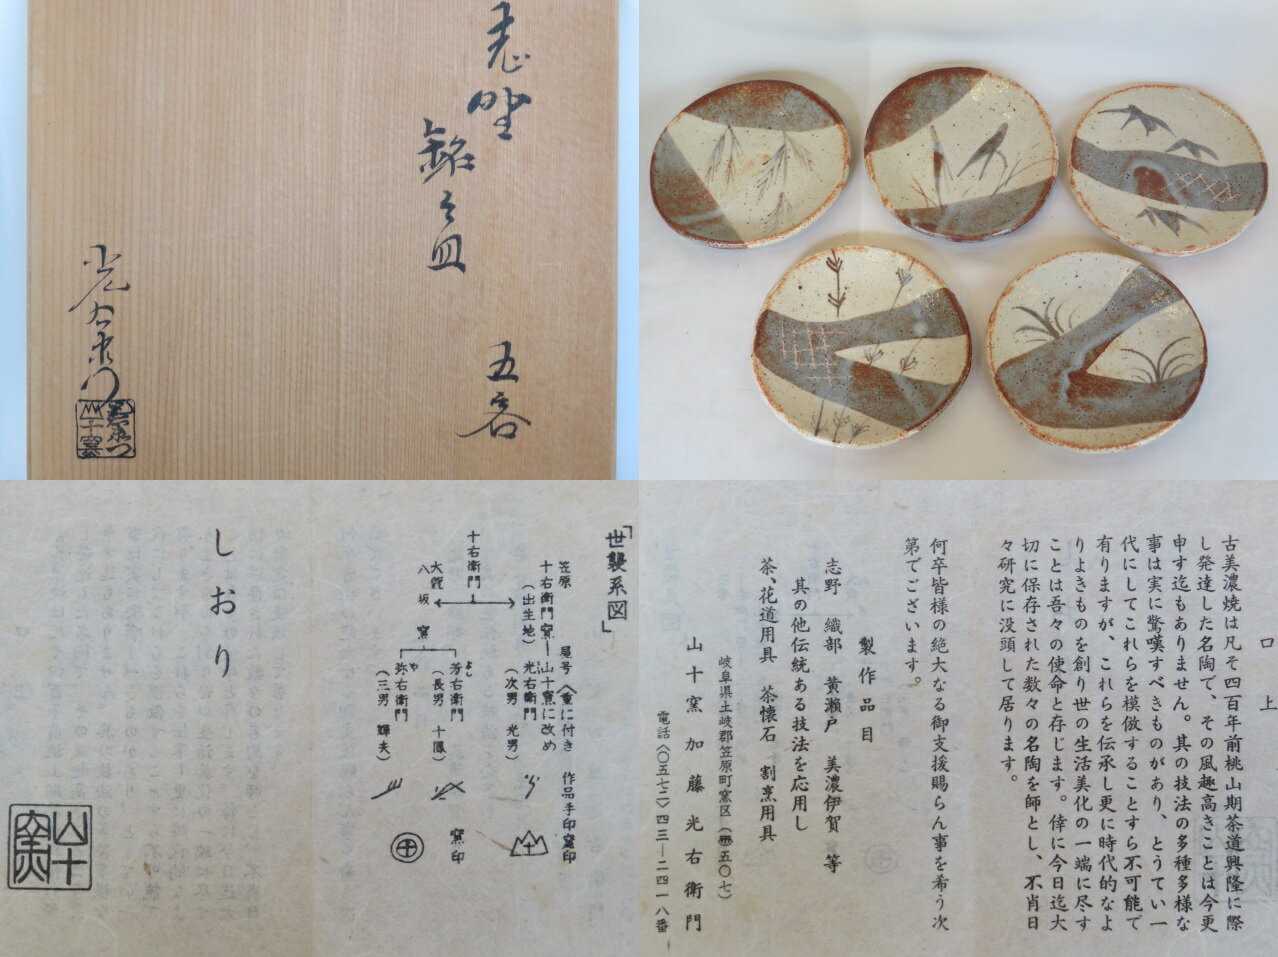 志野
銘々皿
五客
光右衛門
山十窯
光右衛門
しおり
山十窯
「世襲系図」
笠原
十右衛門窯―山十窯に改め
(出生地)
屋号(重に付き
作品手印窯印
光右衛門
(次男 光男)
十右衛門
大萱
八坂
窯
芳右衛門
(長男 十鳳)
弥右衛門
(三男 輝夫)
窯印
口上
古美濃焼は凡そ四百年前桃山期茶道興隆に際
し発達した名陶で、その風趣高きことは今更
申す迄もありません。其の技法の多種多様な
事は実に驚嘆すべきものがあり、とうてい一
代にしてこれらを模倣することすら不可能で
有りますが、これらを伝承し更に時代的なよ
りよきものを創り世の生活美化の一端に尽す
ことは吾々の使命と存じます。倖に今日迄大
切に保存された数々の名陶を師とし、不肖日
々研究に没頭して居ります。
何卒皆様の絶大なる御支援賜らん事を希う次
第でございます。
製作品目
志野 織部 黄瀬戸 美濃伊賀 等
其の他伝統ある技法を応用し
茶、花道用具 茶懐石 割烹用具
岐阜県土岐郡笠原町窯区(〒五〇七)
山十窯 加藤光右衛門
電話〈〇五七二〉四三―二四一八番